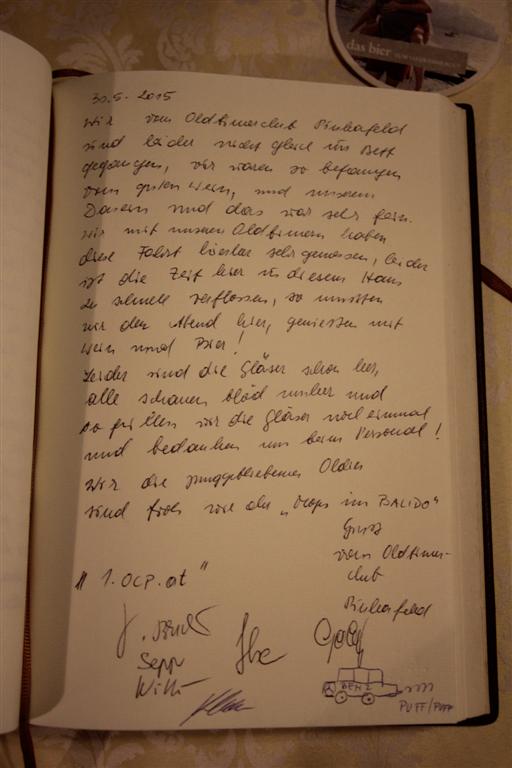 das bier
30.5. 2015
Wir vom Oldtimerclub Pinkafeld
sind leider nicht gleich ins Bett
gegangen, wir waren so befangen
vom guten Wein, und unserem
Dasein und das war sehr fein.
Wir mit unseren Oldtimern haben
diese Fahrt hierher sehr genossen, leider
ist die Zeit hier in diesem Haus
zu schnell verflossen, so mussten
wir den Abend hier, geniessen mit
Wein und Bier!
Leider sind die Gläser schon leer,
alle schauen blöd umher und
so füllen wir die Gläser noch einmal
und bedanken uns beim Personal!
Wir die junggebliebenen Oldies
sind froh wie der „Mops im BALIDO"
Gruss
vom Oldtimer-
club
Pinkafeld
„1. OCP.at"
Sepp
Willi
BENZ
PUFF/PUFF